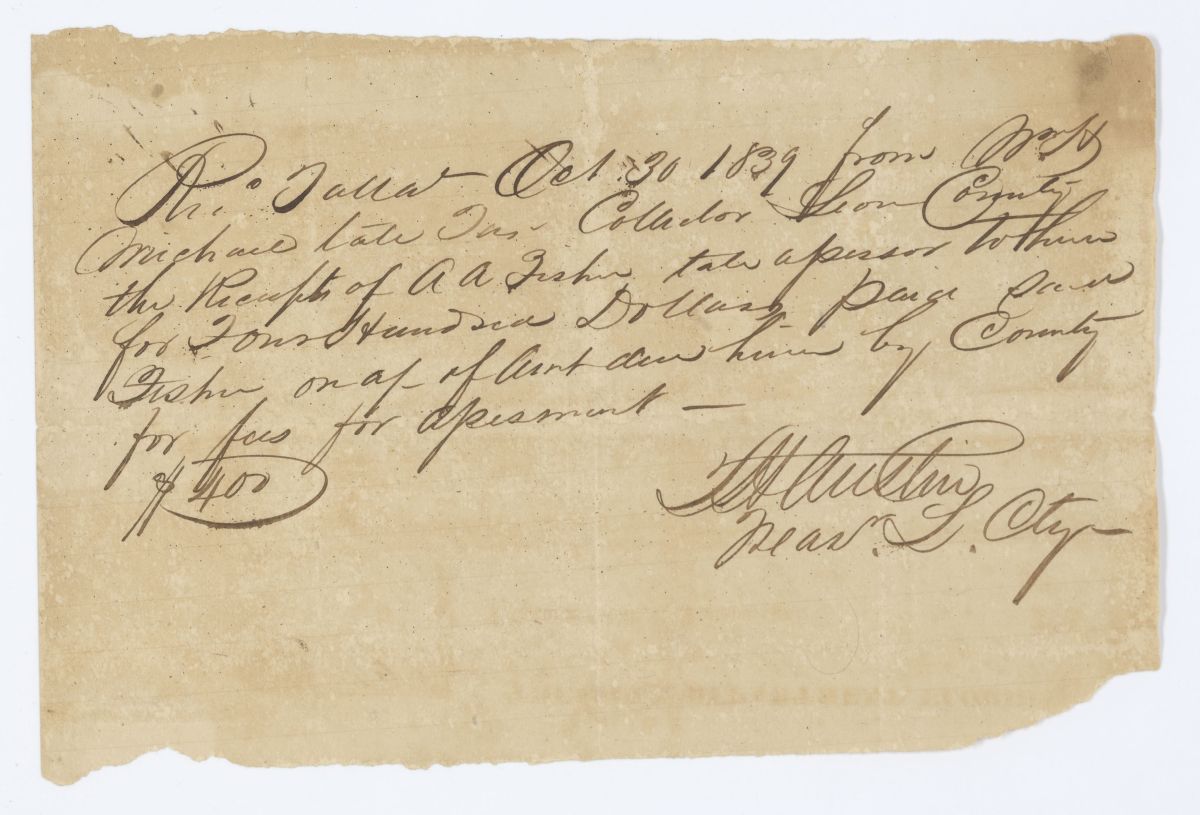 Rec.d Talla. Oct 30 1839 from Wm H
Michael late Tax Collector Leon County
the Receipts of A A Fisher late assessor to him
for Four Hundred Dollars paid said
Fisher on a/c of Amt due him by County
for fees for assesment —
$400
Austin
Treasr. L. Cty